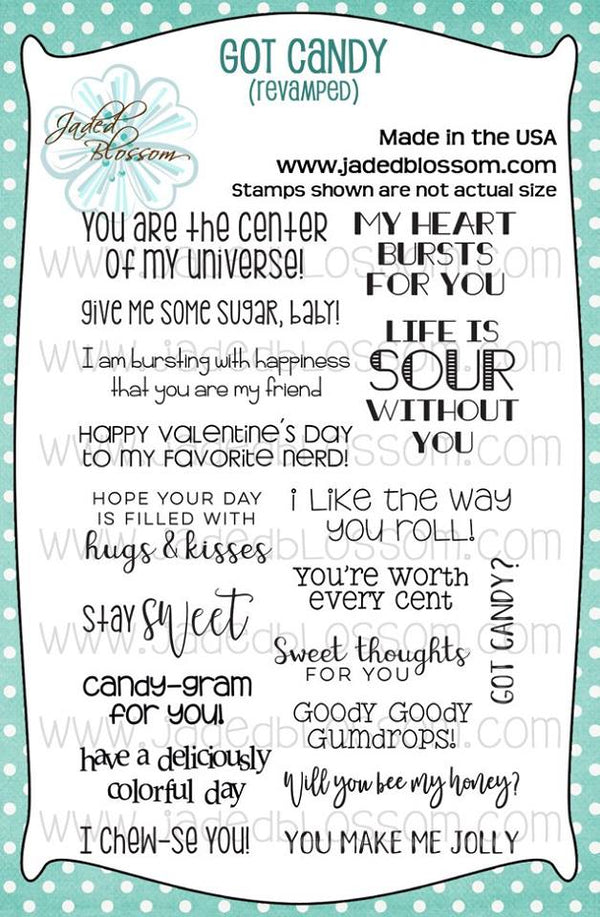 GOT CANDY
(revamped)
Jaded
Blossom
Made in the USA
www.jadedblossom.com
Stamps shown are not actual size
YOU ARE THE CENTER
OF MY UNIVERSE!
GIVE ME SOME SUGAR, BABY!
I am bursting with happiness
that you are my friend
HAPPY VALENTINE'S DAY
TO MY FAVORITE NERD!
HOPE YOUR DAY
IS FILLED WITH
hugs & kisses
STAY sweet
candy-gram
for you!
have a deliciously
colorful day
I CHEW-SE YOU!
MY HEART
BURSTS
FOR YOU
LIFE IS
SOUR
WITHOUT
YOU
i Like the way
you roll!
You're worth
every cent
GOT CANDY?
Sweet thoughts
FOR YOU
Goody Goody
Gumdrops!
Will you bee my honey?
YOU MAKE ME JOLLY
www.JadedbLossom.com
www.JadedbLossom.com
www.JadedbLossom.com
www.JadedbLossom.com
www.JadedbLossom.com
www.JadedbLossom.com
www.JadedbLossom.com